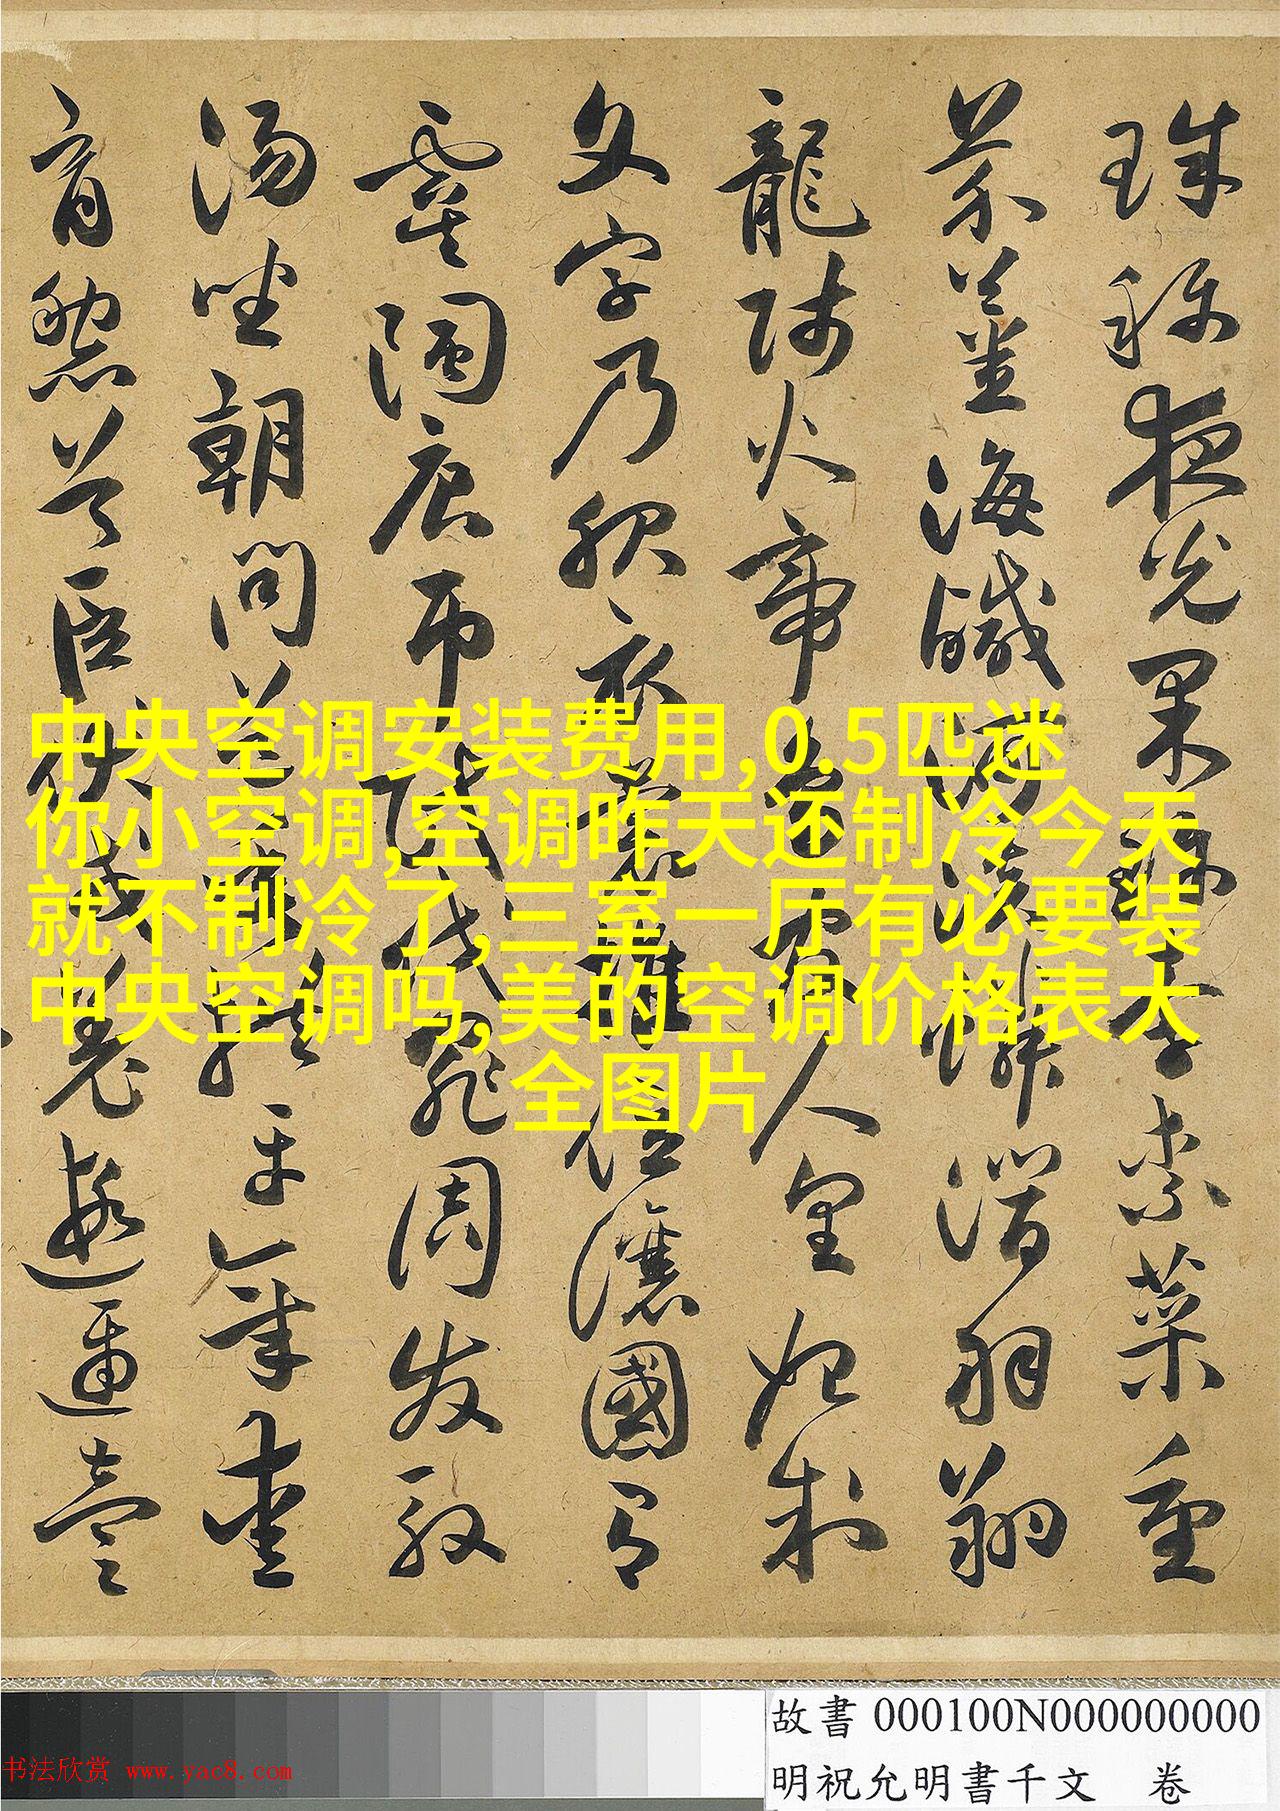 珠称夜光果珍李柰菜重
芥薑海鹹河淡鱗潛羽翔
龍師火帝鳥官人皇始制
文字乃服衣裳推位讓國有
虞陶唐弔民伐罪周发殷
湯坐朝問道垂拱平章愛
育黎首臣伏戎羌遐邇壹
中央空调安装费用,0.5匹迷
你小空调,空调昨天还制冷今天
就不制冷了,三室一厅有必要装
中央空调吗,美的空调价格表大
全图片
故書 000100N000000000
明祝允明書千文 卷
书法欣赏 www.yac8.com